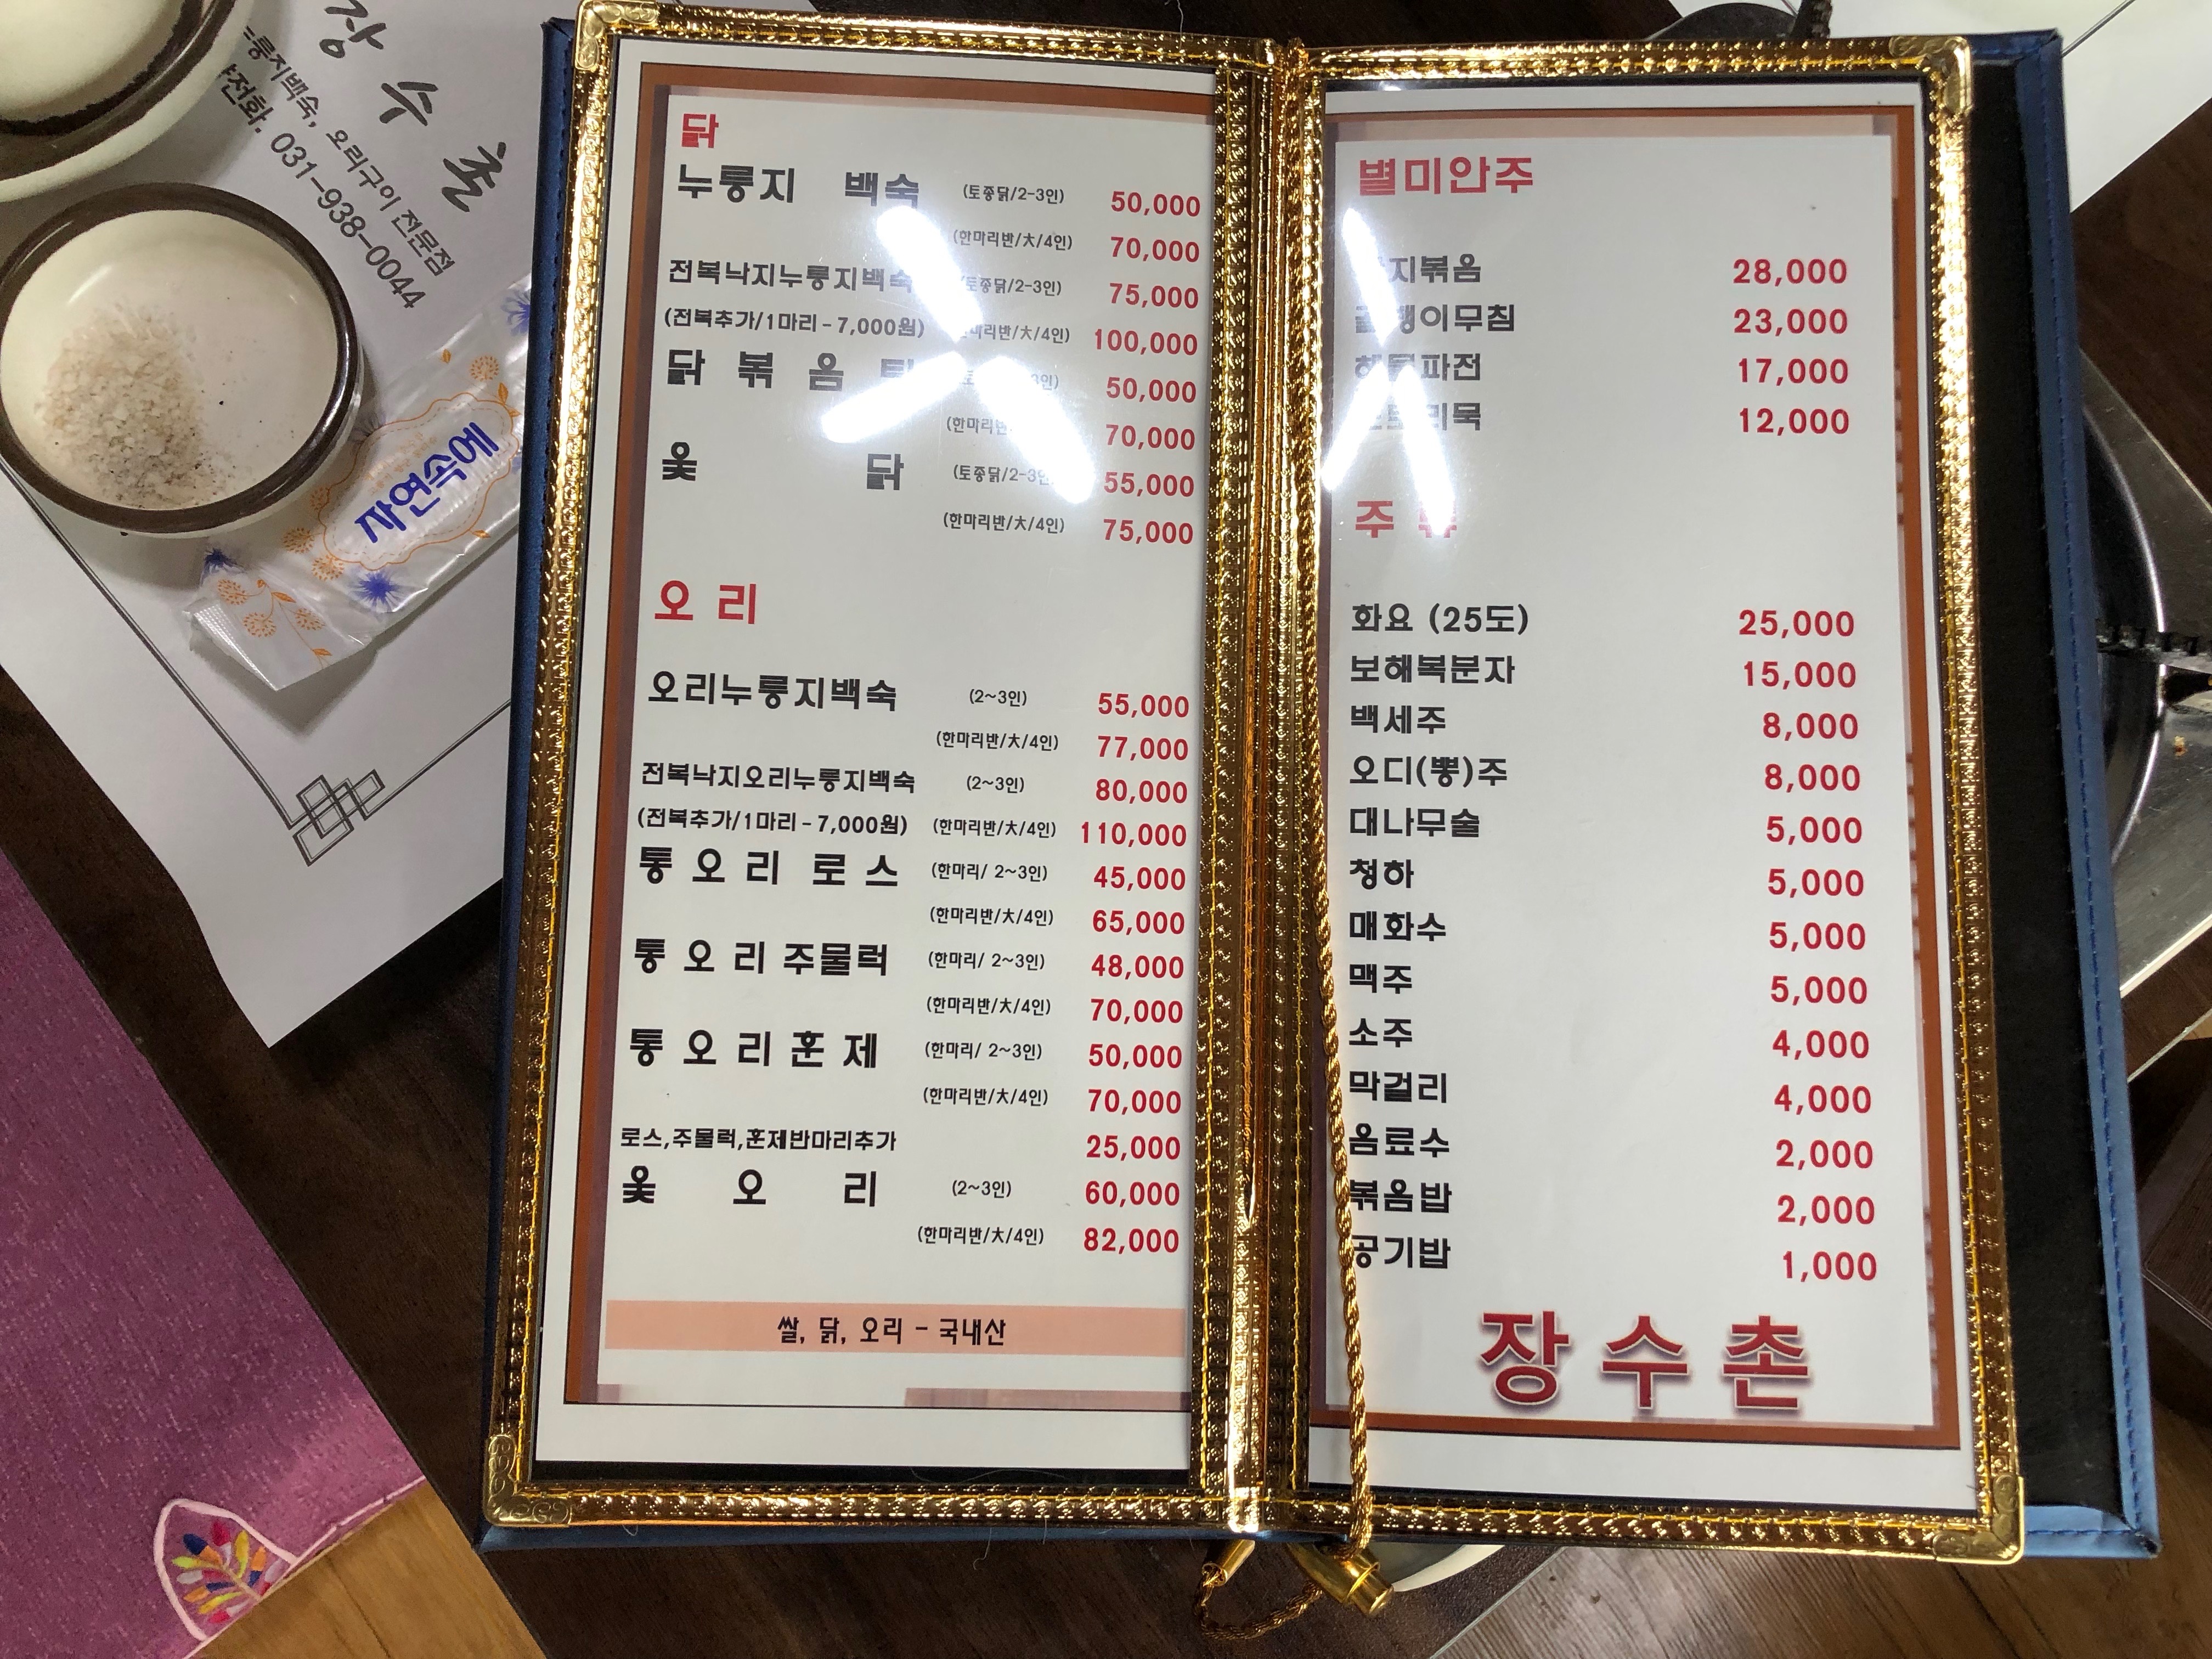 장 수 촌
누룽지백숙, 오리구이 전문점
전화. 031-938-0044
자연속에
닭
누룽지 백숙 (토종닭/2-3인) 50,000
(한마리반/大/4인) 70,000
전복낙지누룽지백숙 (토종닭/2-3인) 75,000
(전복추가/1마리-7,000원) (한마리반/大/4인) 100,000
닭 볶 음 탕 50,000
(한마리 70,000
옻 닭 (토종닭/2-3인) 55,000
(한마리반/大/4인) 75,000
오 리
오리누룽지백숙 (2~3인) 55,000
(한마리반/大/4인) 77,000
전복낙지오리누룽지백숙 (2~3인) 80,000
(전복추가/1마리-7,000원) (한마리반/大/4인) 110,000
통 오 리 로 스 (한마리/ 2~3인) 45,000
(한마리반/大/4인) 65,000
통 오 리 주물럭 (한마리/ 2~3인) 48,000
(한마리반/大/4인) 70,000
통 오 리 훈 제 (한마리/ 2~3인) 50,000
(한마리반/大/4인) 70,000
로스,주물럭,훈제반마리추가 25,000
옻 오 리 (2~3인) 60,000
(한마리반/大/4인) 82,000
쌀, 닭, 오리 - 국내산
별미안주
낙지볶음 28,000
골뱅이무침 23,000
해물파전 17,000
도토리묵 12,000
주 류
화요 (25도) 25,000
보해복분자 15,000
백세주 8,000
오디(뽕)주 8,000
대나무술 5,000
청하 5,000
매화수 5,000
맥주 5,000
소주 4,000
막걸리 4,000
음료수 2,000
볶음밥 2,000
공기밥 1,000
장수촌